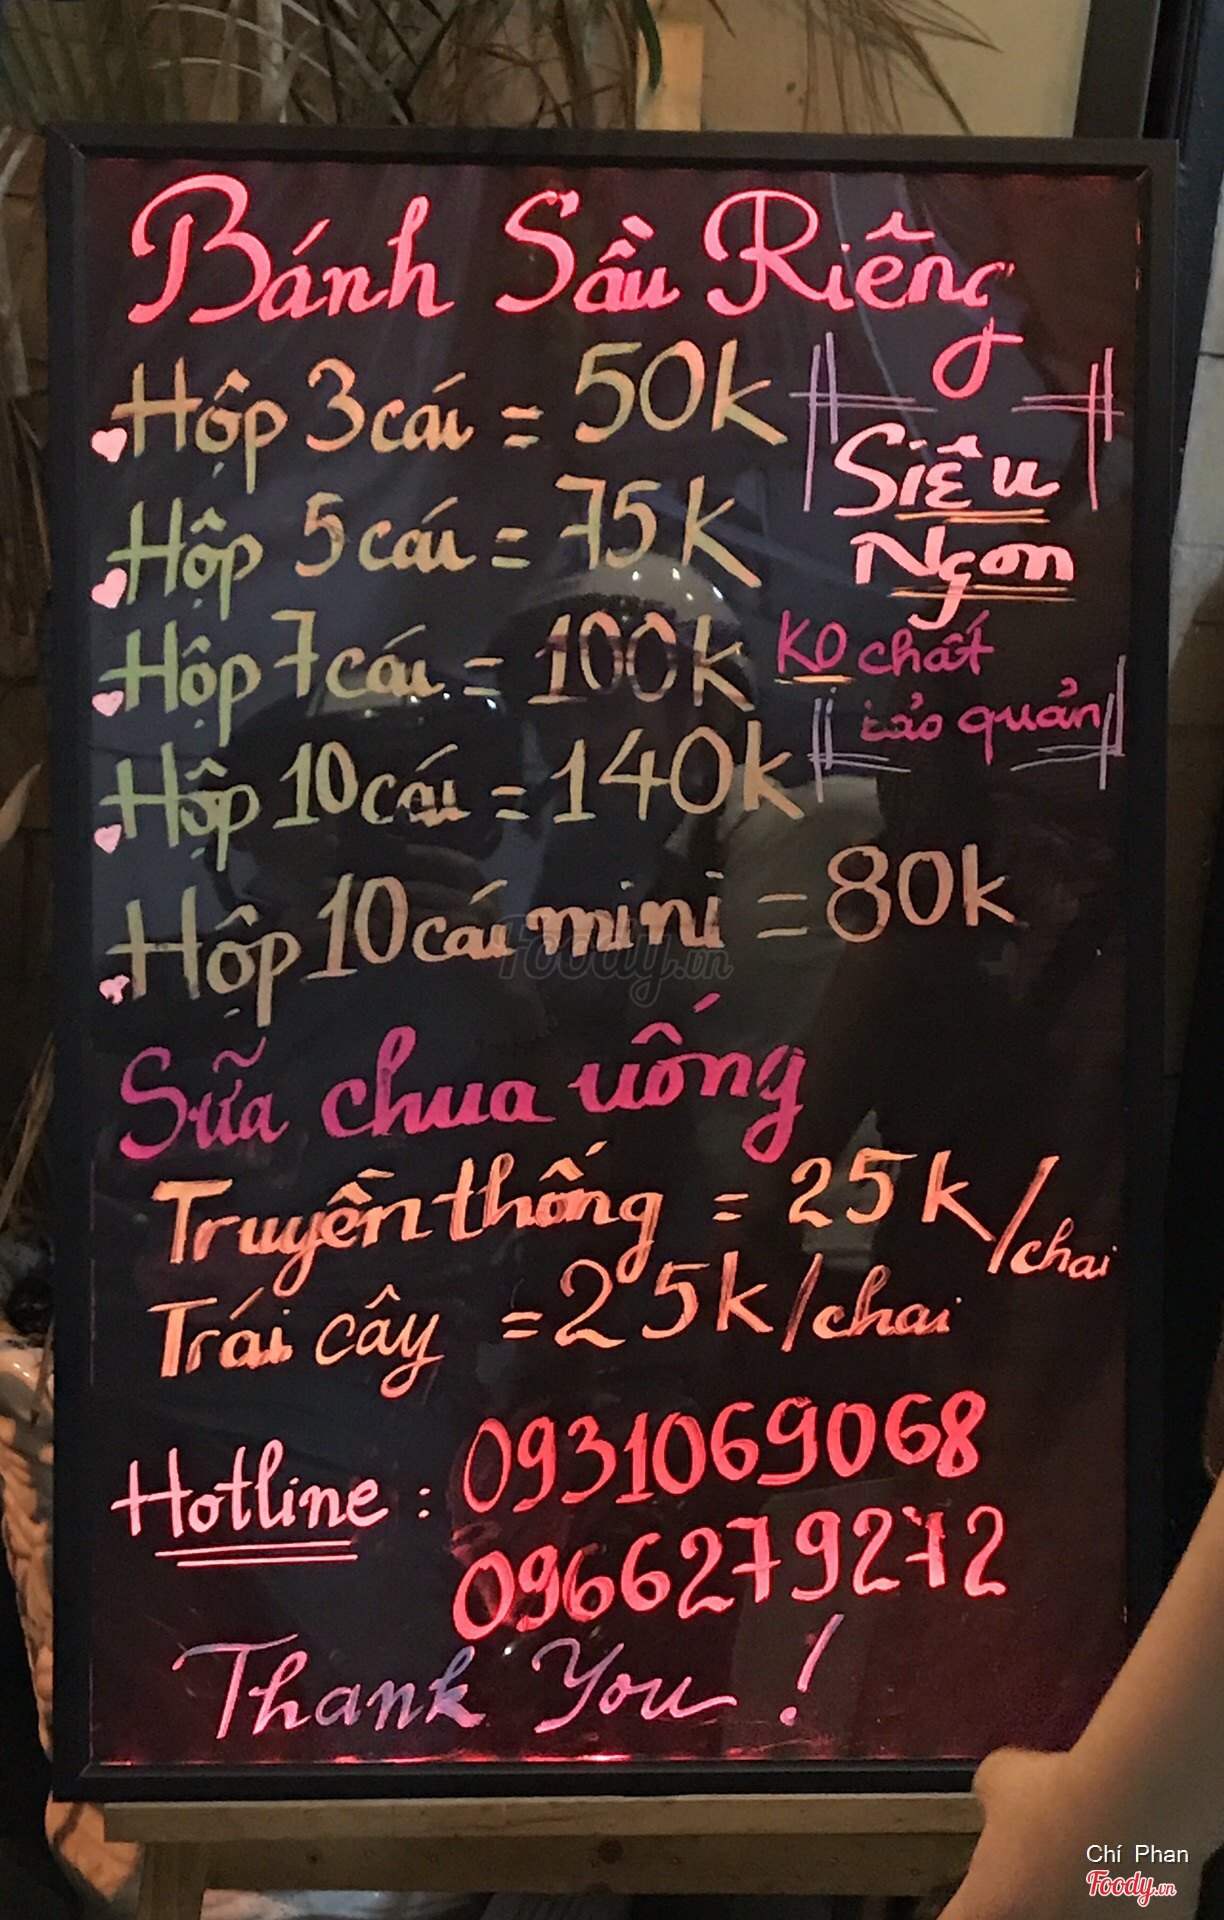 Bánh Sầu Riêng
Hộp 3 cái = 50k
Siêu
Ngon
Hộp 5 cái = 75k
Hộp 7 cái = 100k
KO chất
bảo quản
Hộp 10 cái = 140k
Hộp 10 cái mini = 80k
Foody.vn
Sữa chua uống
Truyền thống = 25k/chai
Trái cây = 25k/chai
Hotline : 0931069068
0966279272
Thank You !
Chí Phan
Foody.vn